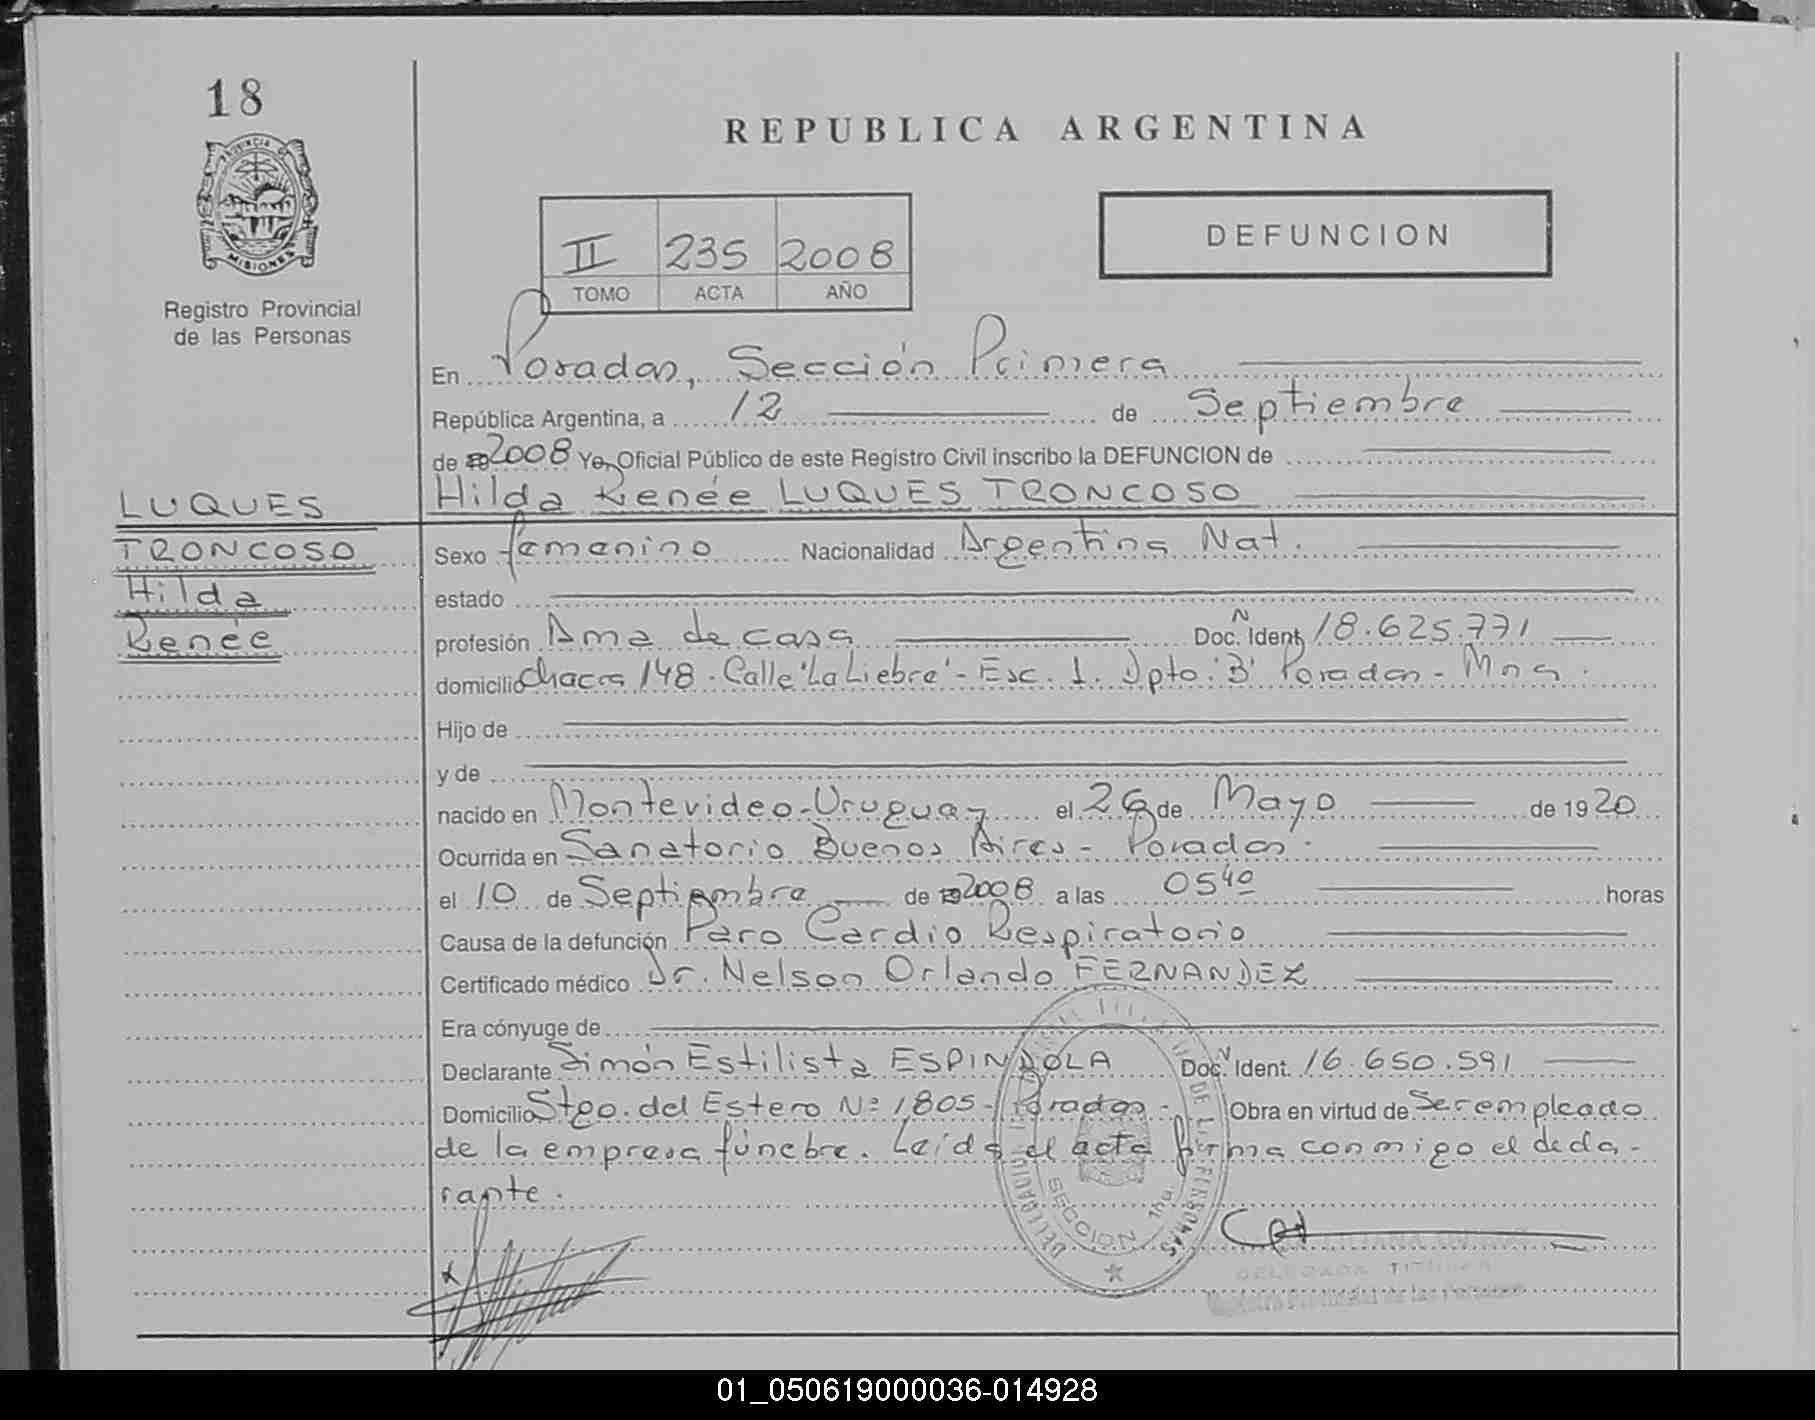 18
PROVINCIA DE
MISIONES
Registro Provincial
de las Personas
REPUBLICA ARGENTINA
II 235 2008
TOMO ACTA AÑO
DEFUNCION
En Posadas, Sección Primera
República Argentina, a 12 de Septiembre
de 2008 Yo, Oficial Público de este Registro Civil inscribo la DEFUNCION de
Hilda Renée LUQUES TRONCOSO
LUQUES
TRONCOSO
Hilda
Renée
Sexo femenino Nacionalidad Argentina Nat.
estado
profesión Ama de casa Doc. N Ident. 18.625.771
domicilio Chacra 148. Calle 'La Liebre' - Esc. 1. Dpto. 'B' Posadas - Mnes.
Hijo de
y de
nacido en Montevideo-Uruguay el 26 de Mayo de 1920
Ocurrida en Sanatorio Buenos Aires - Posadas.
el 10 de Septiembre de 2008 a las 05 40 horas
Causa de la defunción Paro Cardio Respiratorio
Certificado médico Dr. Nelson Orlando FERNANDEZ
Era cónyuge de
Declarante Simón Estilista ESPINDOLA Doc. N Ident. 16.650.591
Domicilio Stgo. del Estero Nº 1805 - Posadas - Obra en virtud de Ser empleado
de la empresa fúnebre. Leída el acta firma conmigo el decla-
rante.
SECCION 1ra.
DELEGADA TITULAR
Registro Provincial de las Personas
01_050619000036-014928